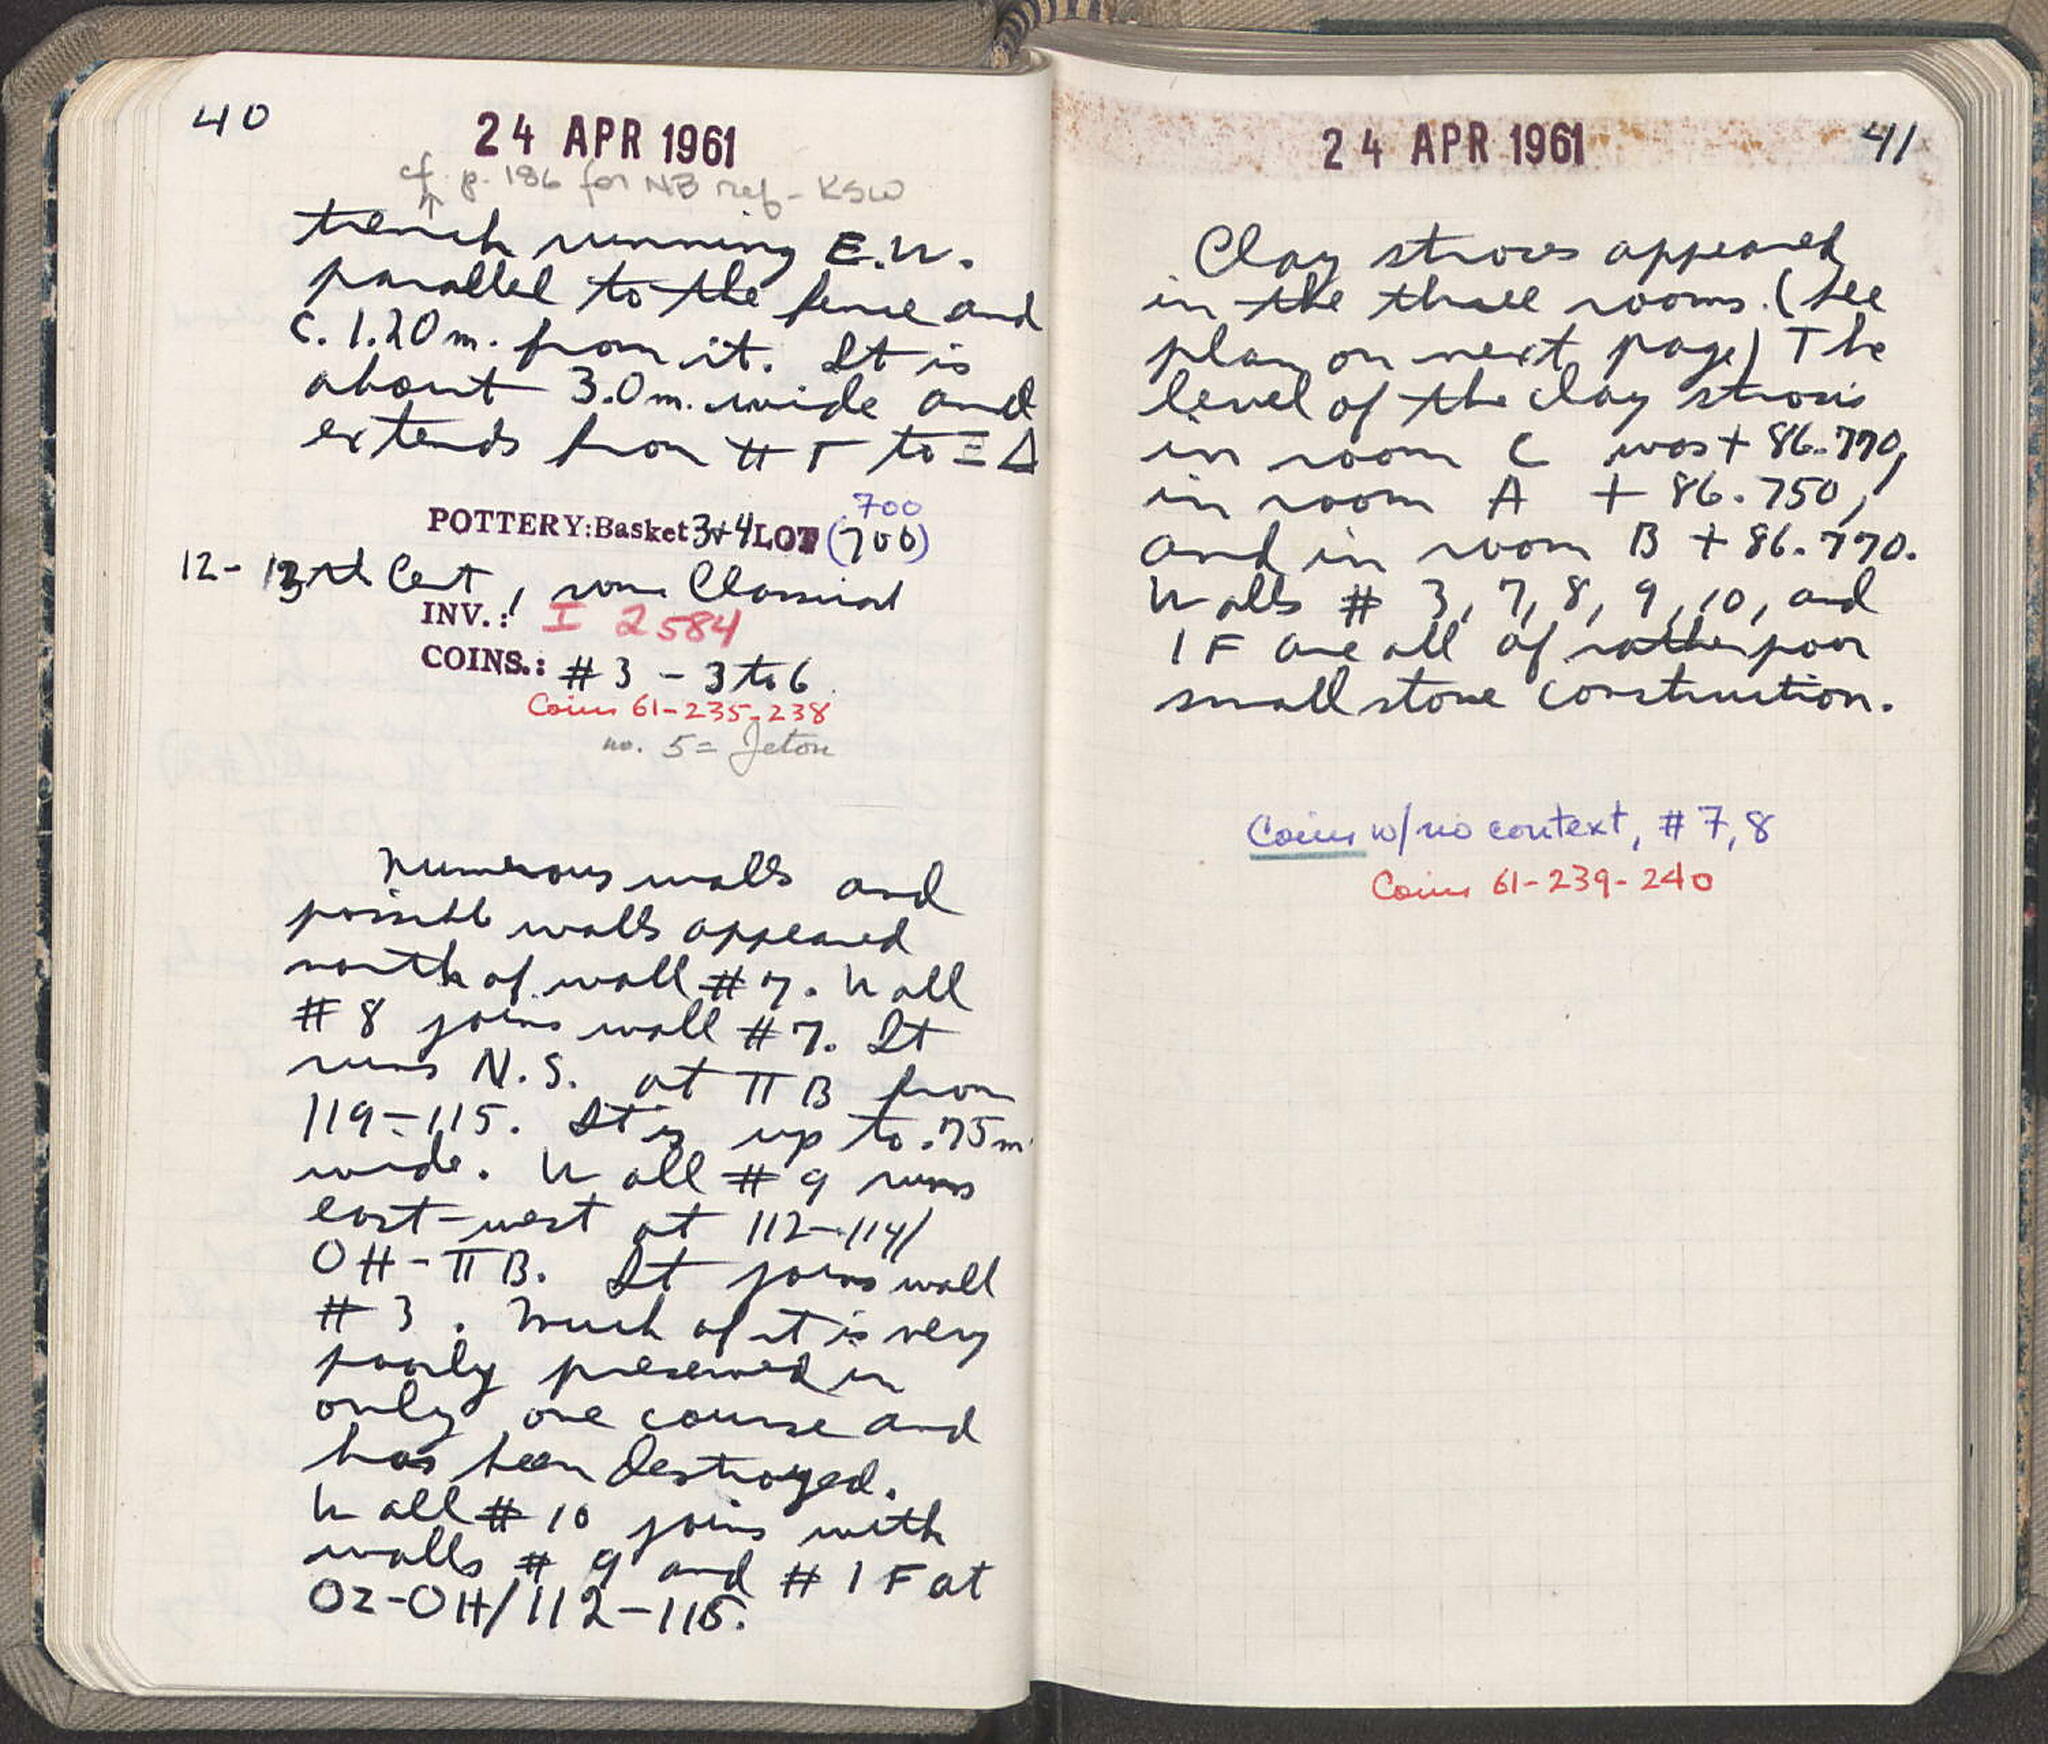 40
24 APR 1961
cf. p. 186 for NB ref - KSW
trench running E.W.
parallel to the fence and
c. 1.20 m. from it. It is
about 3.0 m. wide and
extends from ΞΓ to ΞΔ
700
POTTERY: Basket 3+4 LOT (700)
12-13rd Cent, some Classical
INV.: I 2584
COINS.: #3 - 3 to 6.
Coins 61-235-238
no. 5 = Jeton
Numerous walls and
possible walls appeared
north of wall #7. Wall
#8 joins wall #7. It
runs N.S. at ΠB from
119-115. It is up to .75m
wide. Wall #9 runs
east-west at 112-114/
OH-ΠB. It joins wall
#3. Much of it is very
poorly preserved in
only one course and
has been destroyed.
Wall #10 joins with
walls #9 and #1F at
OZ-OH/112-115.
24 APR 1961
41
Clay stroses appeared
in the three rooms. (See
plan on next page) The
level of the clay strosis
in room C was + 86.770,
in room A + 86.750,
and in room B + 86.770.
Walls # 3, 7, 8, 9, 10, and
1F are all of rather poor
small stone construction.
Coins w/no context, # 7, 8
Coins 61-239-240